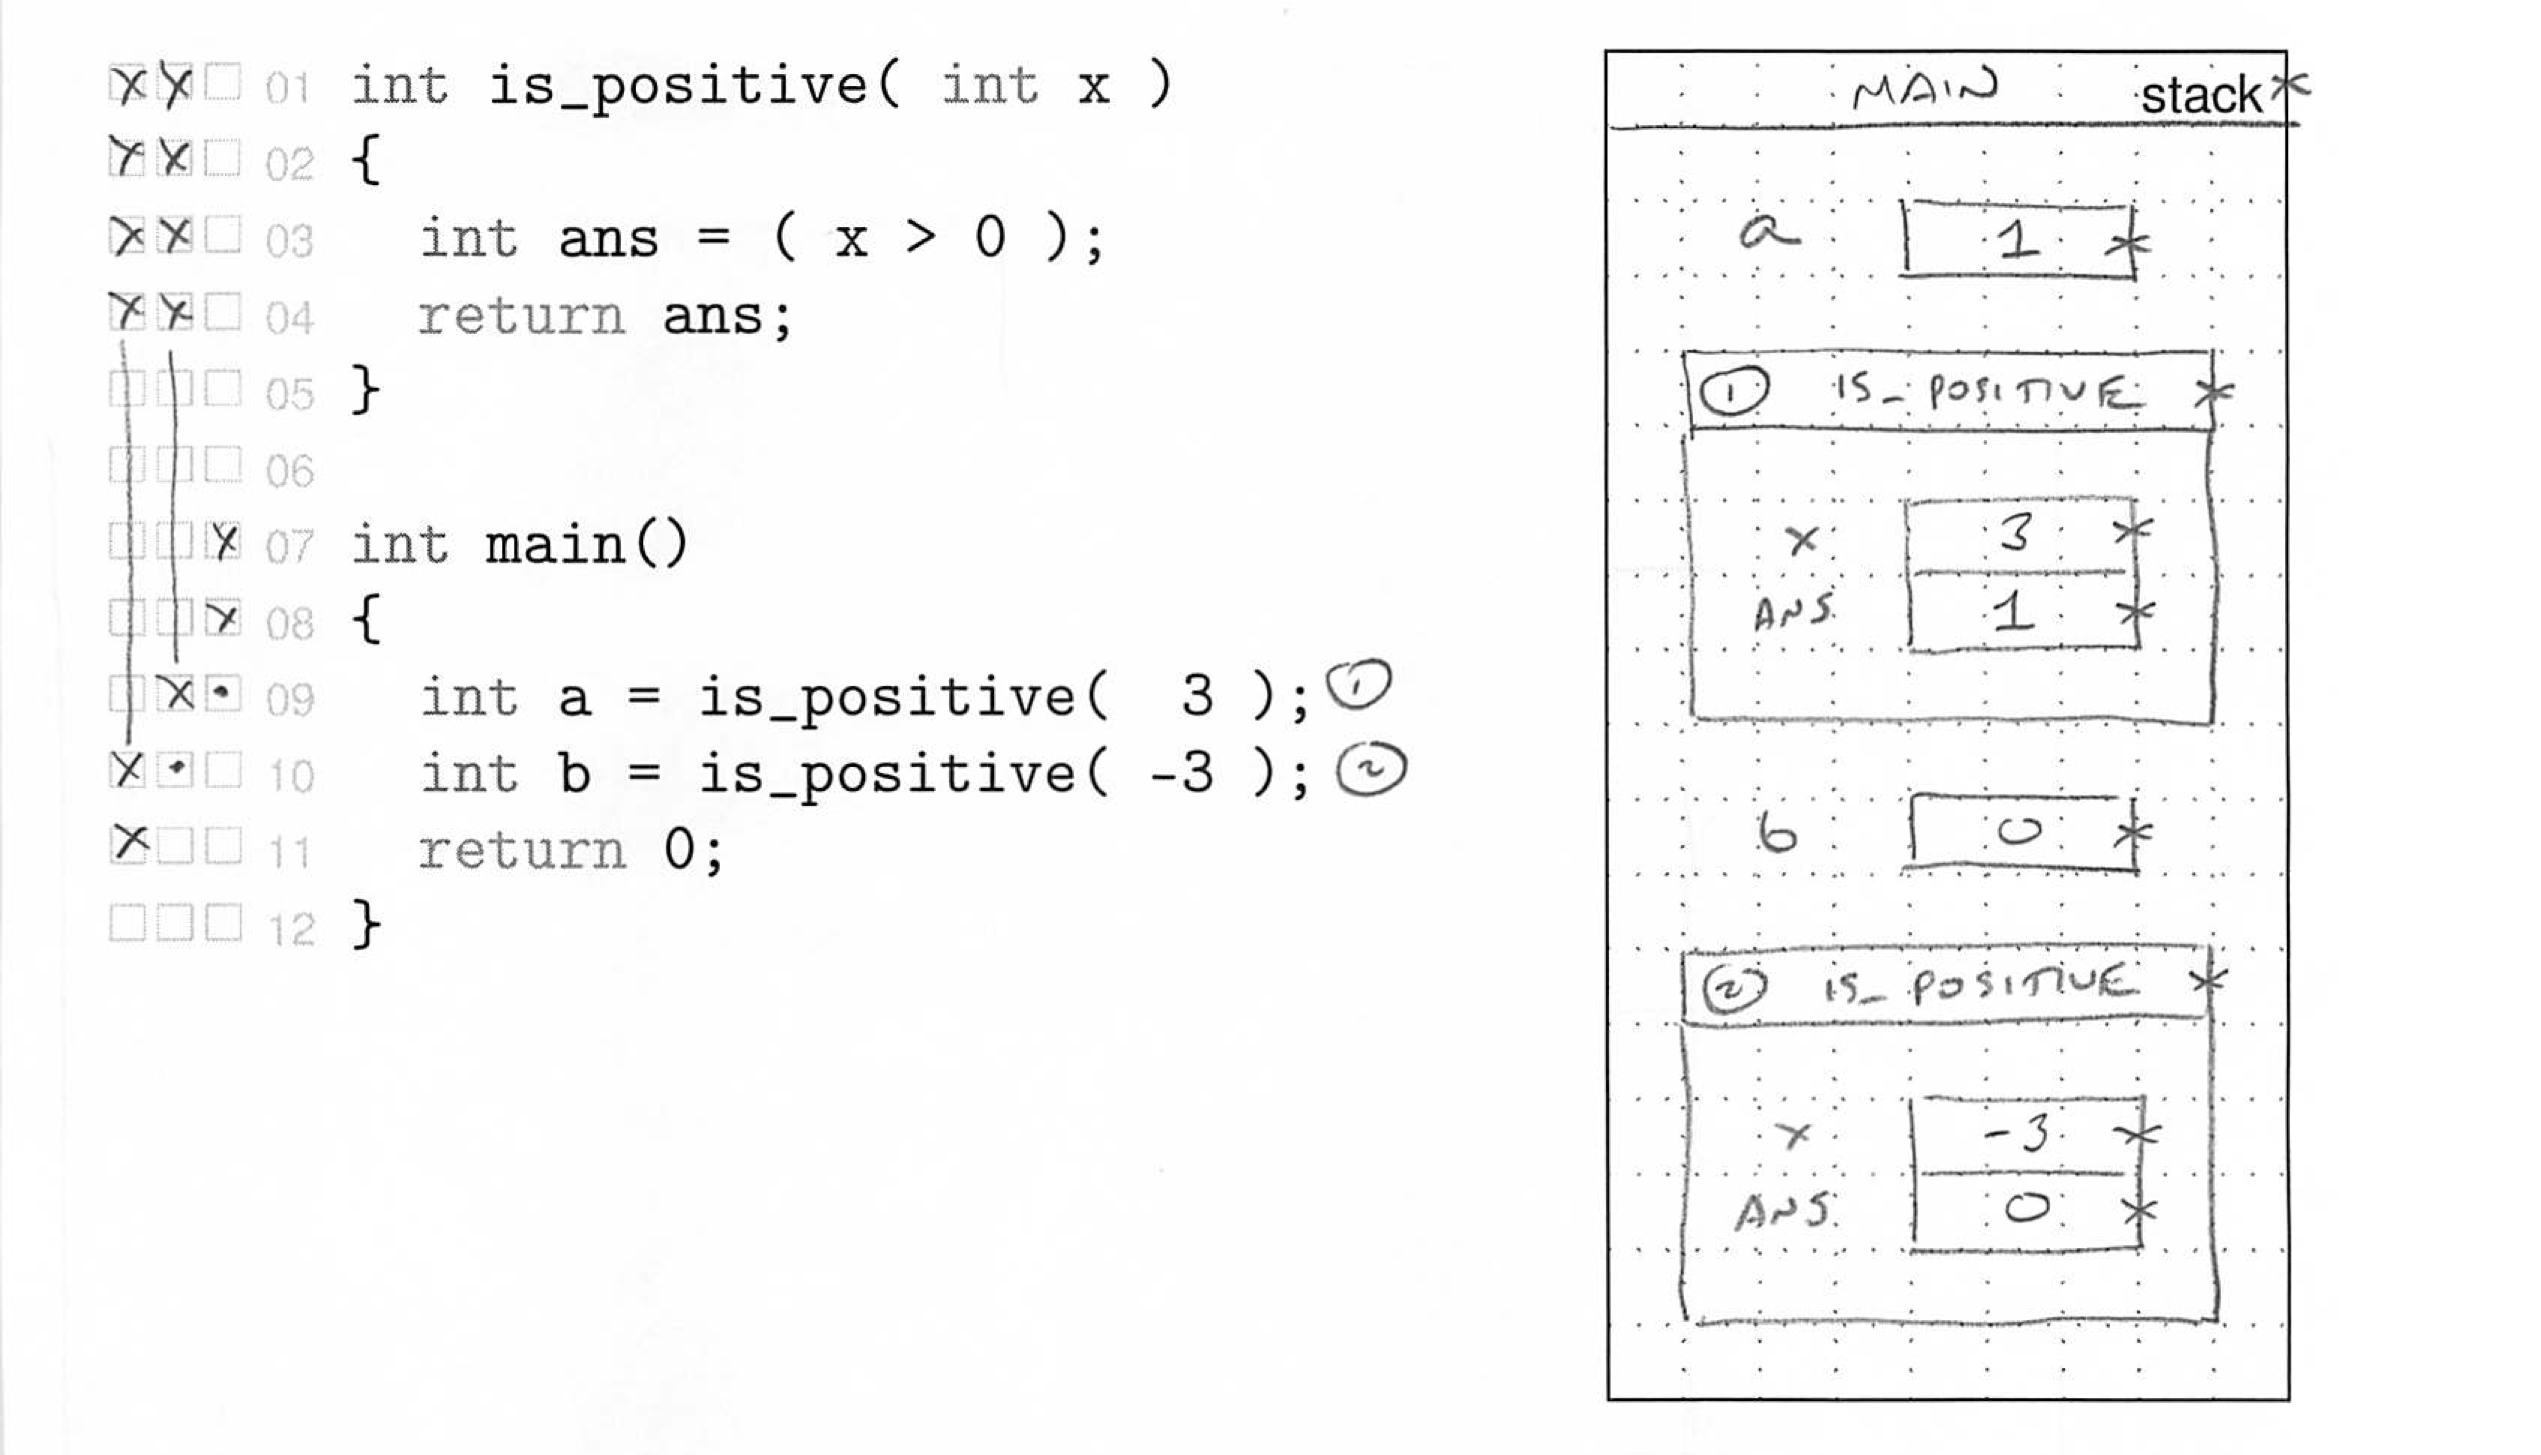 01 int is_positive( int x )
02 {
03 int ans = ( x > 0 );
04 return ans;
05 }
06
07 int main()
08 {
09 int a = is_positive( 3 ); 1
10 int b = is_positive( -3 ); 2
11 return 0;
12 }
MAIN stack
a 1
1 IS_POSITIVE
x 3
ANS 1
b 0
2 IS_POSITIVE
x -3
ANS 0